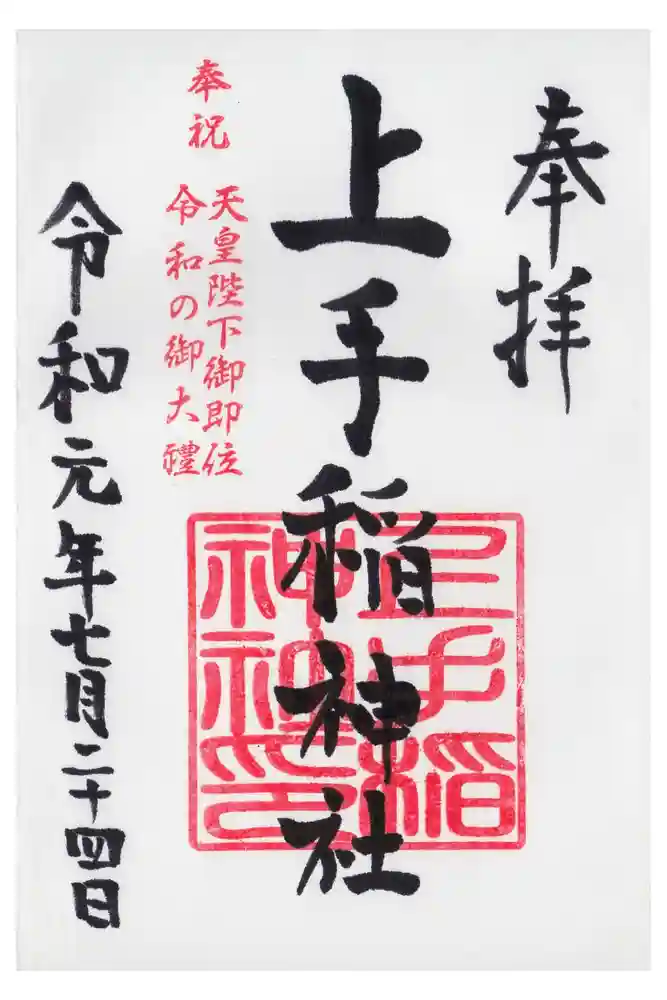 奉拝
上手稲神社
上手稲
神社
神印
奉祝
天皇陛下御即位
令和の御大禮
令和元年七月二十四日